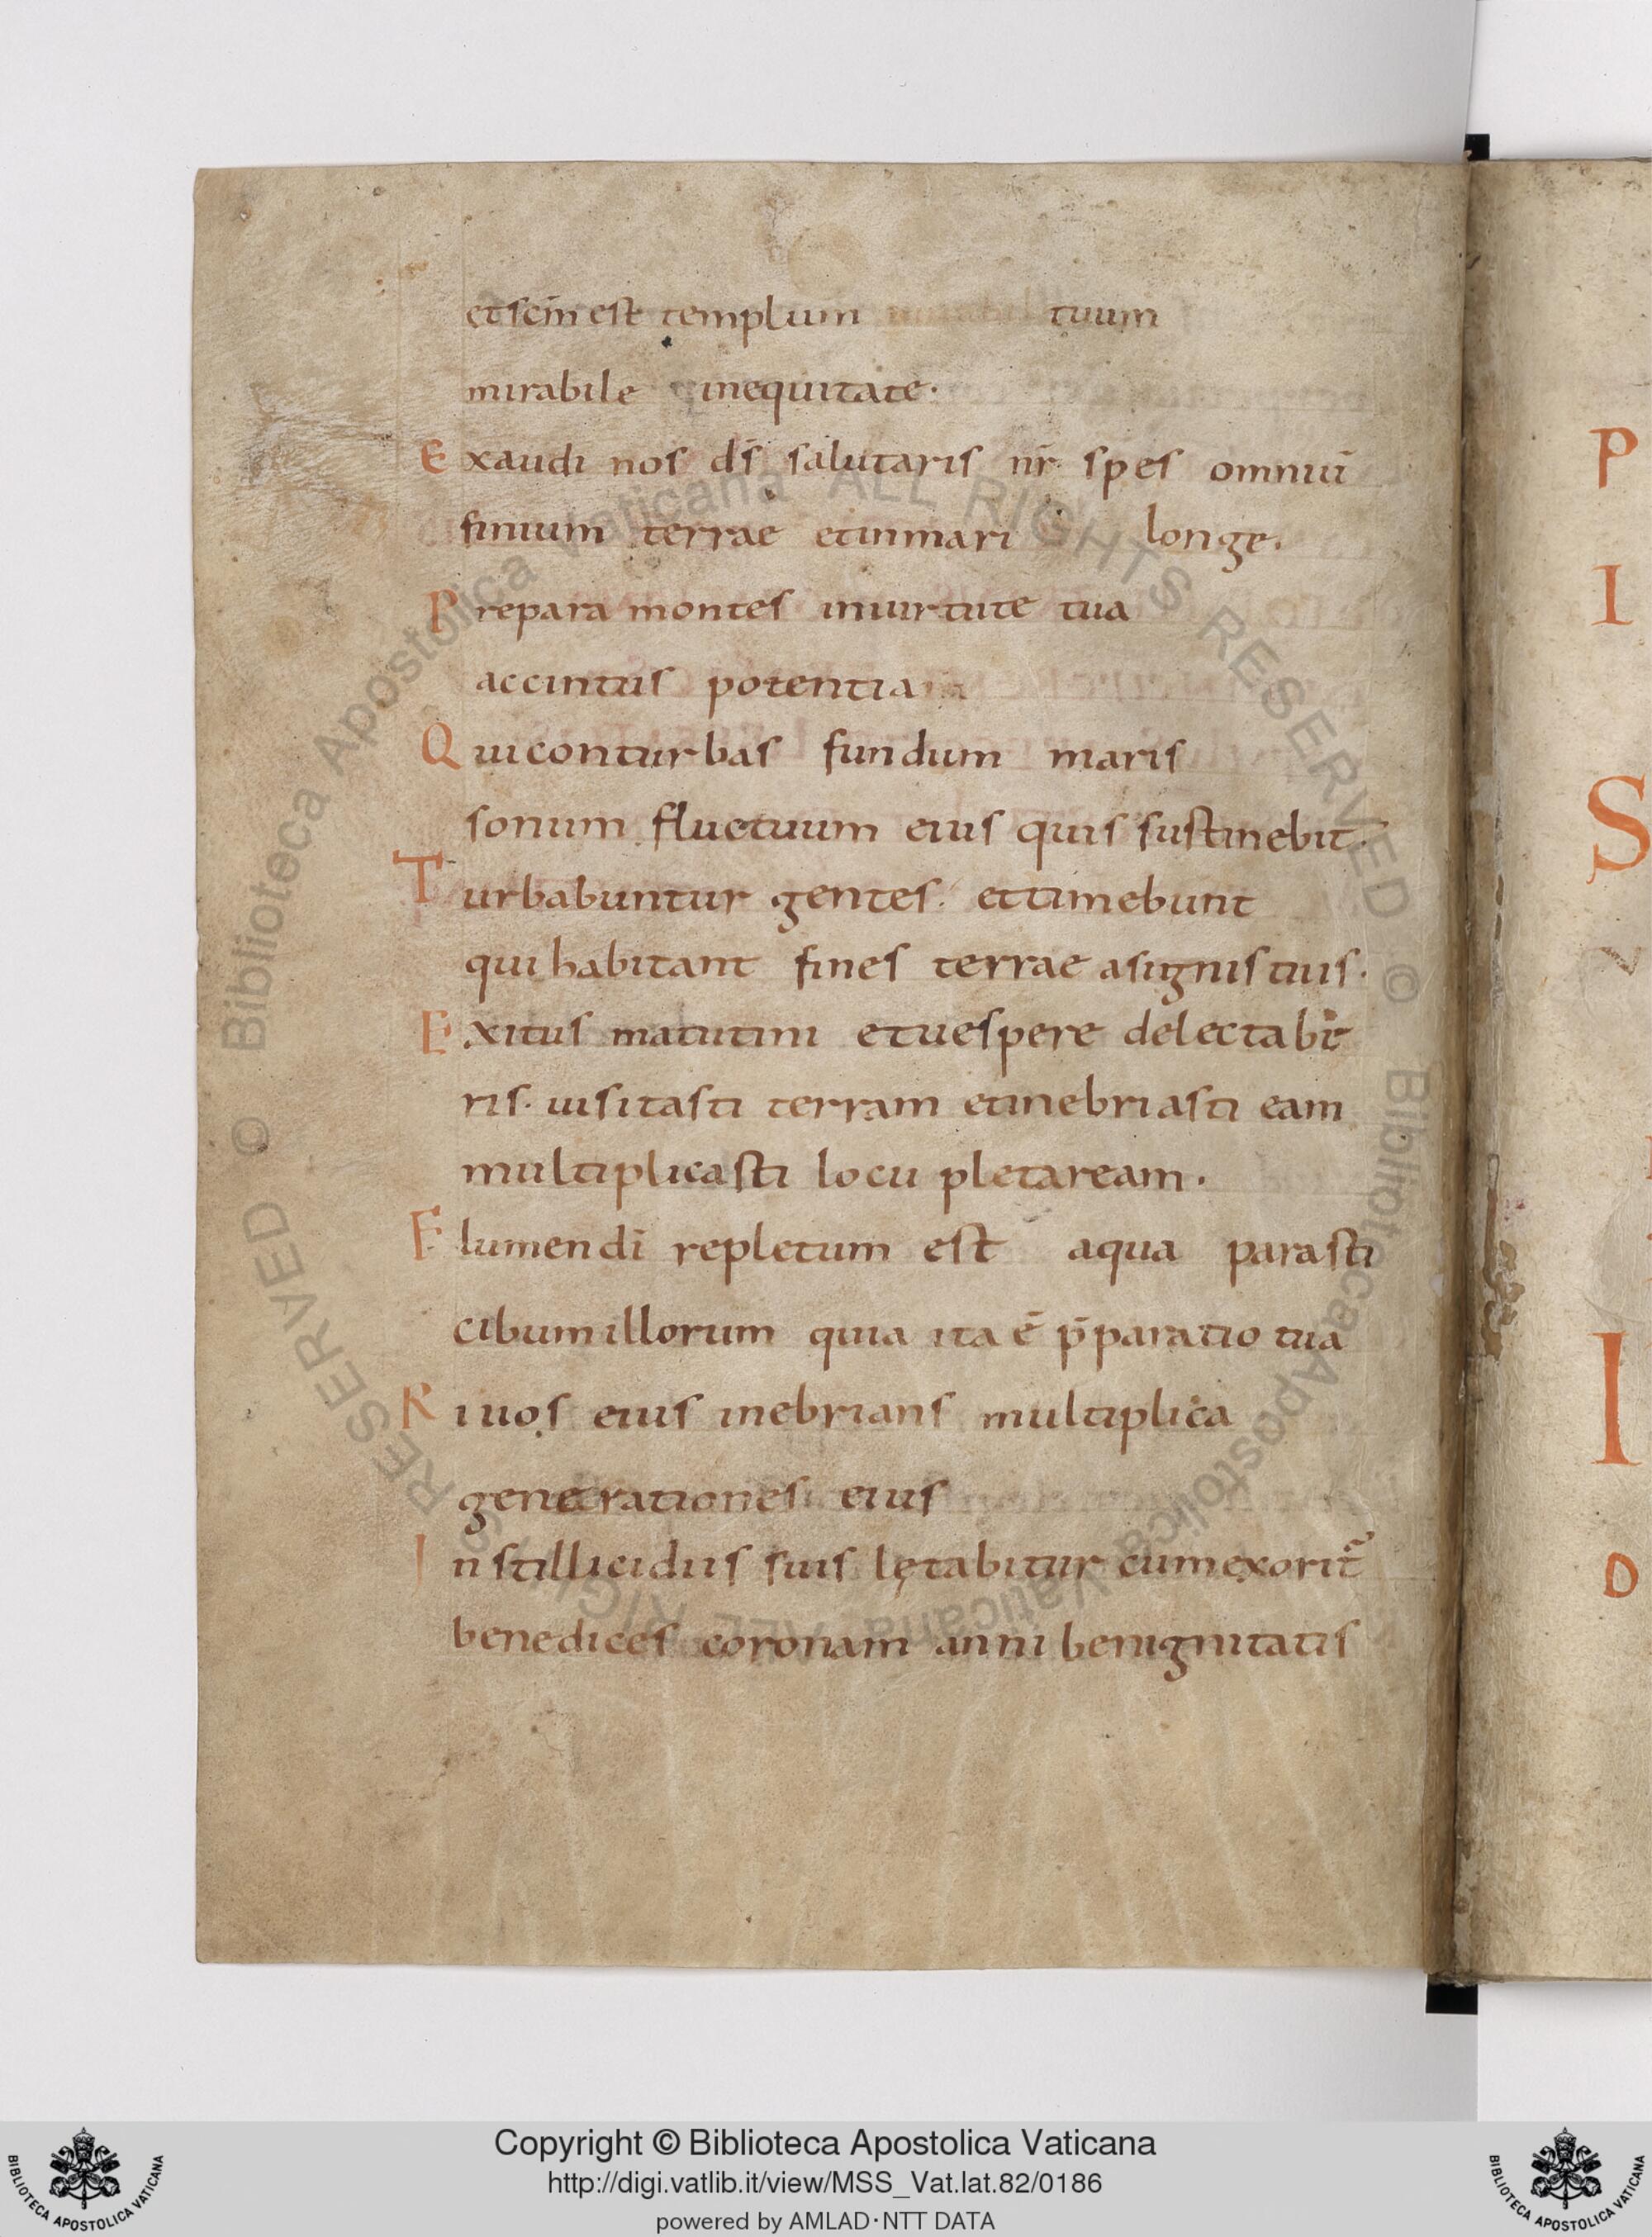 et scm̄ est templum tuum
mirabile inequitate·
Exaudi nos ds̄ salutaris nr̄ spes omniū
finium terrae etinmari longe.
Prepara montes inuirtute tua
accintus potentia
Quiconturbas fundum maris
sonum fluctuum eius quis sustinebit·
Turbabuntur gentes· ettimebunt
qui habitant fines terrae asignis tuis·
Exitus matutini etuespere delectabe
ris· uisitasti terram etinebriasti eam
multiplicasti locu pletaream·
Flumendī repletum est aqua parasti
cibumillorum quia ita ē p̄paratio tua
Riuos eius inebrians multiplica
generationes eius
Instillicidiis suis lętabitur cumexorit̄
benedices coronam anni benignitatis
P
I
S
I
D
© Biblioteca Apostolica Vaticana ALL RIGHTS RESERVED © Biblioteca Apostolica Vaticana ALL RIGHTS RESERVED
Copyright © Biblioteca Apostolica Vaticana
http://digi.vatlib.it/view/MSS_Vat.lat.82/0186
powered by AMLAD·NTT DATA
BIBLIOTECA APOSTOLICA VATICANA
BIBLIOTECA APOSTOLICA VATICANA